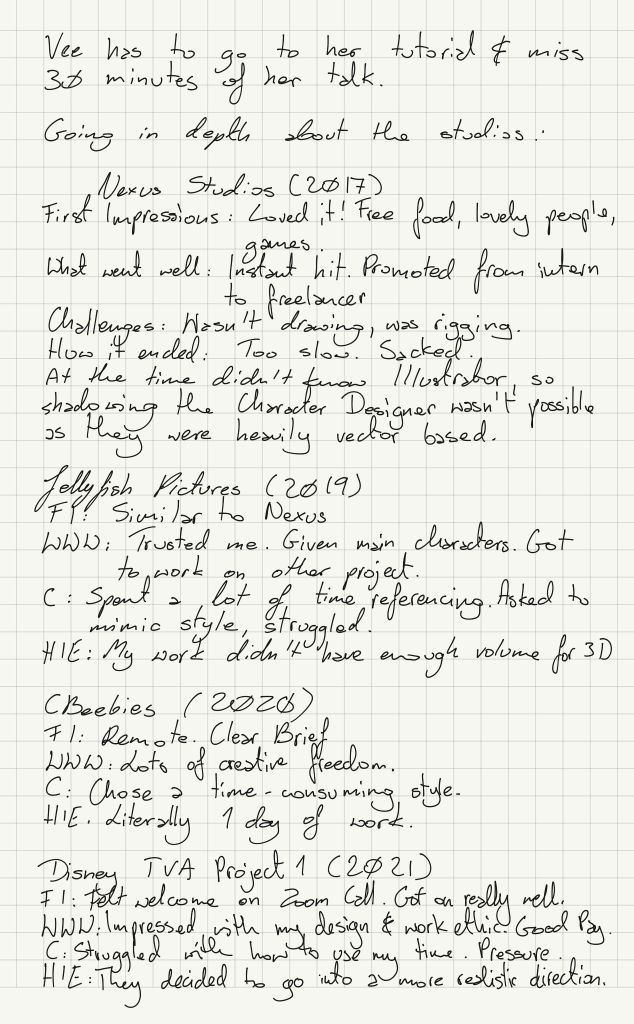 Vee has to go to her tutorial & miss
30 minutes of her talk.
Going in depth about the studios:
Nexus Studios (2017)
First Impressions: Loved it! Free food, lovely people,
games.
What went well: Instant hit. Promoted from intern
to freelancer
Challenges: Wasn't drawing, was rigging.
How it ended: Too slow. Sacked.
At the time didn't know Illustrator, so
shadowing the Character Designer wasn't possible
as they were heavily vector based.
Jellyfish Pictures (2019)
FI: Similar to Nexus
WWW: Trusted me. Given main characters. Got
to work on other project.
C: Spent a lot of time referencing. Asked to
mimic style, struggled.
HIE: My work didn't have enough volume for 3D
CBeebies (2020)
FI: Remote. Clear Brief
WWW: Lots of creative freedom.
C: Chose a time-consuming style.
HIE. Literally 1 day of work.
Disney TVA Project 1 (2021)
FI: Felt welcome on Zoom Call. Got on really well.
WWW: Impressed with my design & work ethic. Good Pay.
C: Struggled with how to use my time. Pressure.
HIE: They decided to go into a more realistic direction.